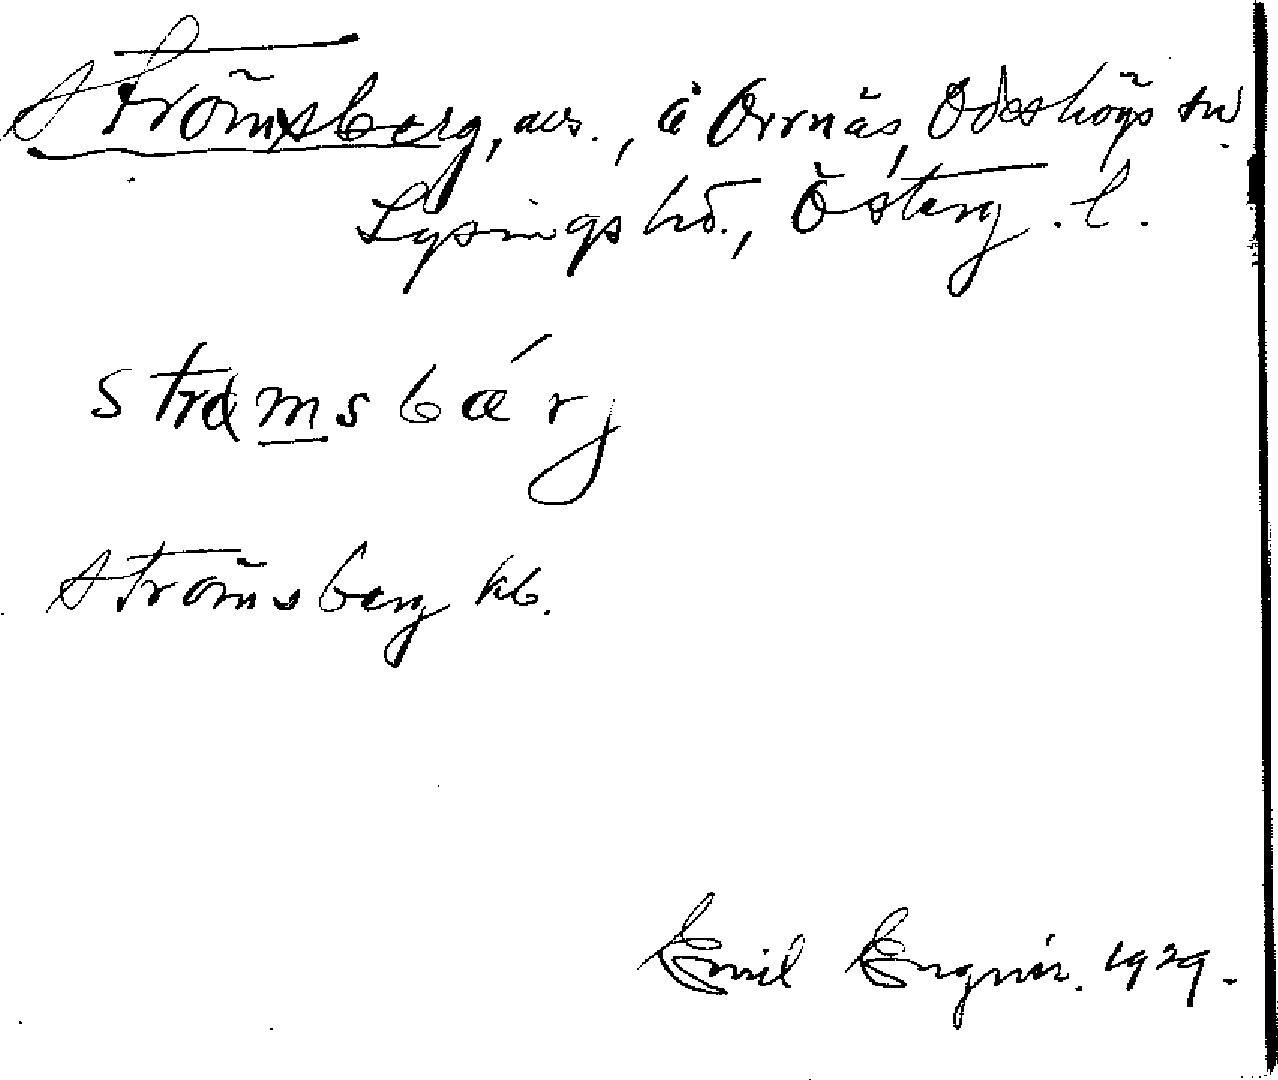 Strömsberg, avs., å Orrnäs, Ödeshögs sn
Lysings hd., Österg. l.
strömsbärj
Strömsberg kb.
Emil Engnér. 1929.